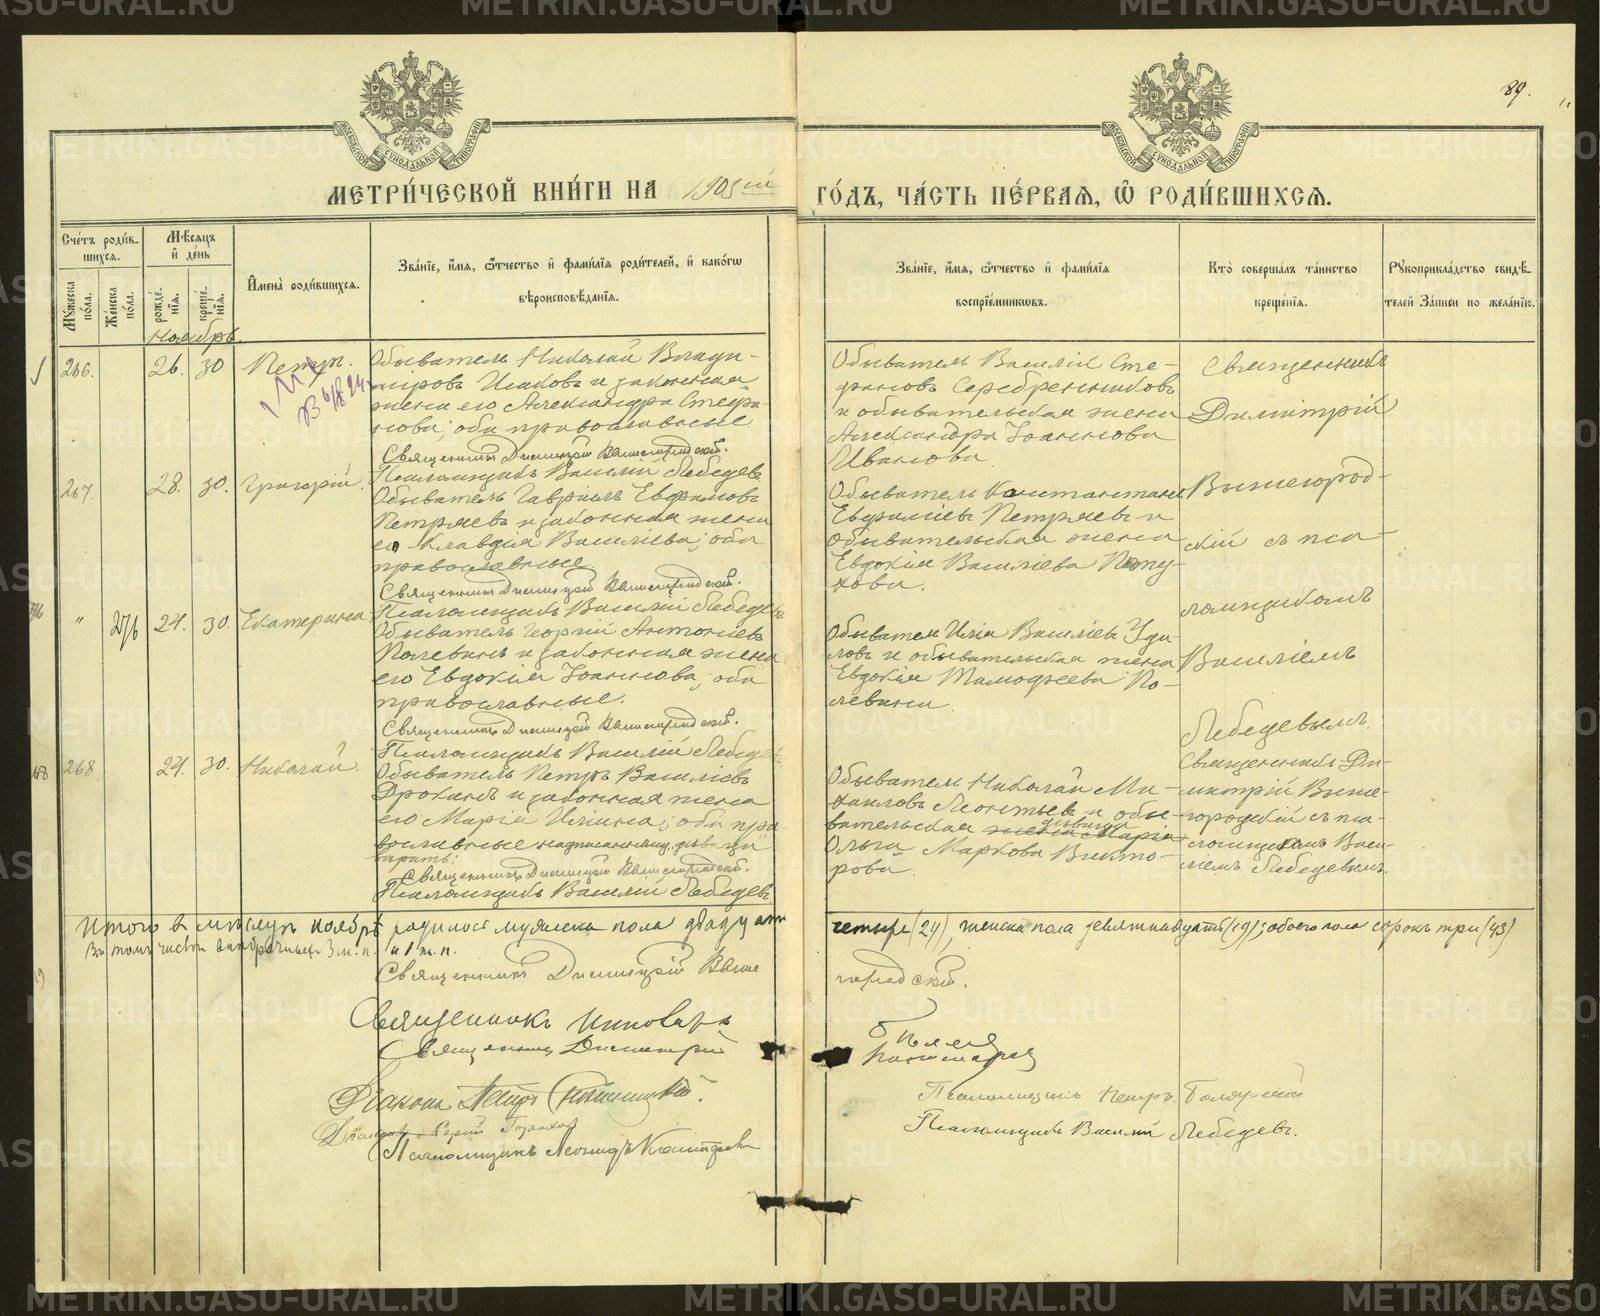 89.
МОСКОВСКОЙ СѴНОДАЛЬНОЙ ТИПОГРАФІИ
МОСКОВСКОЙ СѴНОДАЛЬНОЙ ТИПОГРАФІИ
МЕТРИ́ЧЕСКОЙ КНИ́ГИ НА 1905й ГО́ДЪ, ЧА́СТЬ ПЕ́РВАЯ, Ѡ҆ РОДИ́ВШИХСЯ.
Сче́тъ роди́вшихся.
Мꙋ́жеска по́ла.
Же́нска по́ла.
Мѣ́сяцъ и҆ де́нь
рожде́нїя.
креще́нїя.
И҆мена̀ роди́вшихся.
Зва́нїе, и҆́мя, ѻ҆́тчество и҆ фами́лїя роди́телей, и҆ како́гѡ
вѣроисповѣ́данїя.
Зва́нїе, и҆́мя, ѻ҆́тчество и҆ фами́лїя
воспрїе́мниковъ.
Кто̀ соверша́лъ та́инство
креще́нїя.
Рꙋкоприкла́дство свидѣ́телей
За́писи по жела́нїю.
Ноябрь.
266.
26. 30
Петръ.
Обыватель Николай Влади-
міровъ Исаковъ и законная
жена его Александра Стефа-
нова; оба православные
Священникъ Димитрій Вышегородскій.
Псаломщикъ Василій Лебедевъ
Обыватель Василій Сте-
фановъ Серебренниковъ
и обывательская жена
Александра Іоаннова
Иванова.
Священникъ
Димитрій
Вышегород-
скій съ пса-
ломщикомъ
Василіемъ
Лебедевымъ.
267.
28. 30.
Григорій.
Обыватель Гавріилъ Евфимовъ
Петряевъ и законная жена
его Клавдія Василіева; оба
православные
Священникъ Димитрій Вышегородскій.
Псаломщикъ Василій Лебедевъ
Обыватель Константинъ
Евфиміевъ Петряевъ и
обывательская жена
Евдокія Василіева
" 276
24. 30.
Екатерина
Обыватель Георгій Антоніевъ
Полевинъ и законная жена
его Евдокія Іоаннова; оба
православные.
Священникъ Димитрій Вышегородскій.
Псаломщикъ Василій Лебедевъ
Обыватель Илія Василіевъ Уди-
ловъ и обывательская жена
Евдокія Тимофеева По-
левина.
268
24. 30.
Николай.
Обыватель Петръ Василіевъ
и законная жена
его Марія Иліина; оба пра-
вославные
Священникъ Димитрій Вышегородскій.
Псаломщикъ Василій Лебедевъ
Обыватель Николай Ми-
хаиловъ Леонтьевъ и обы-
вательская жена Марія девица
Ольга Маркова Викто-
рова.
Священникъ Ди-
митрій Выше-
городскій съ пса-
ломщикомъ Васи-
ліемъ Лебедевымъ.
Итого въ мѣсяцѣ ноябрѣ родилось мужеска пола двадцать четыре (24), женска пола девятнадцать (19); обоего пола сорокъ три (43)
Въ томъ числѣ внебрачныхъ 3 м. п. и 1 ж. п.
Священникъ Димитрій Вышегородскій.
Священникъ
Священникъ Димитрій
Діаконъ Петръ
Псаломщикъ Леонидъ
Псаломщикъ Петръ
Псаломщикъ Василій Лебедевъ.
METRIKI.GASO-URAL.RU